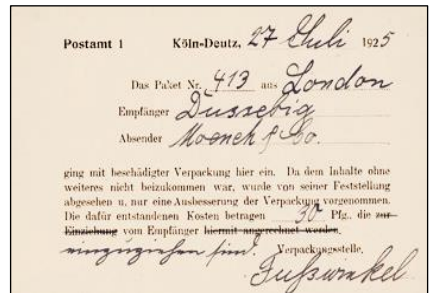 Postamt 1 Köln-Deutz, 27 Juli 1925
Das Paket Nr. 413 aus London
Empfänger Dussebig
Absender Moench & Co.
ging mit beschädigter Verpackung hier ein. Da dem Inhalte ohne
weiteres nicht beizukommen war, wurde von seiner Feststellung
abgesehen u. nur eine Ausbesserung der Verpackung vorgenommen.
Die dafür entstandenen Kosten betragen 30 Pfg., die zur
Einziehung vom Empfänger hiermit angerechnet werden.
einzuziehen sind. Verpackungsstelle.
Fußwinkel